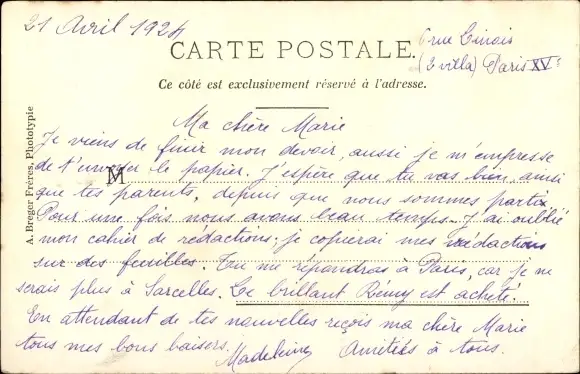 21 Avril 1924
6 rue Linois
(3 villa) Paris XVe
CARTE POSTALE.
Ce côté est exclusivement réservé à l'adresse.
A. Breger Frères, Phototypie
M
Ma chère Marie
Je viens de finir mon devoir, aussi je m'empresse
de t'envoyer le papier. J'espère que tu vas bien ainsi
que tes parents, depuis que nous sommes partis.
Pour une fois nous avons beau temps. J'ai oublié
mon cahier de rédactions; je copierai mes rédactions
sur des feuilles. Tu me répondras à Paris, car je ne
serais plus à Sarcelles. Ce brillant Rémy est acheté.
En attendant de tes nouvelles reçois ma chère Marie
tous mes bons baisers.
Madeleine Amitiés à tous.